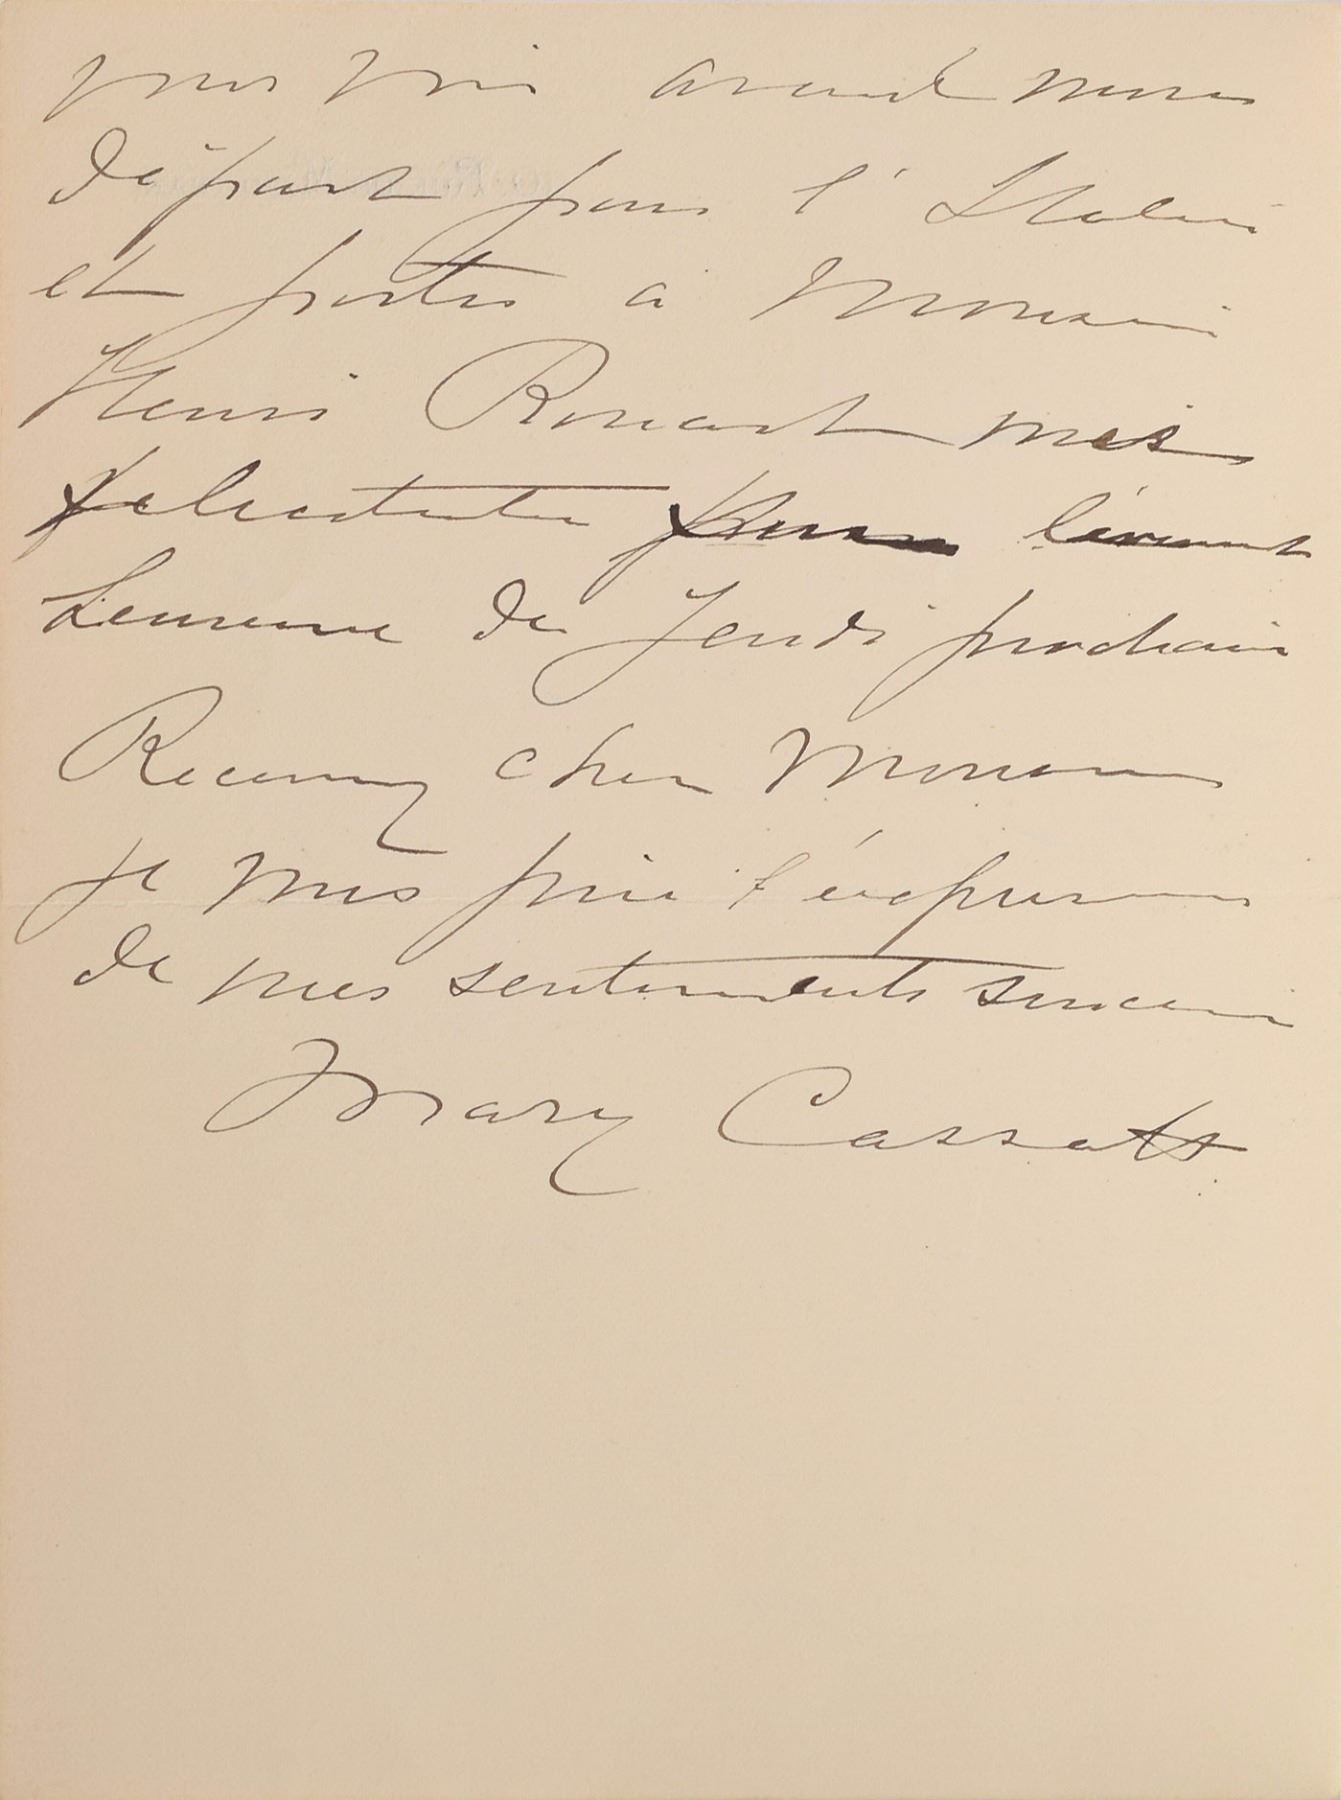 vous voir avant notre
départ pour l'Italie
et portez à Monsieur
Henri Rouart mes
felicitations pour l'évenement
heureux de Jeudi prochain
Recevez cher Monsieur
je vous prie l'expression
de mes sentiments sincères
Mary Cassatt